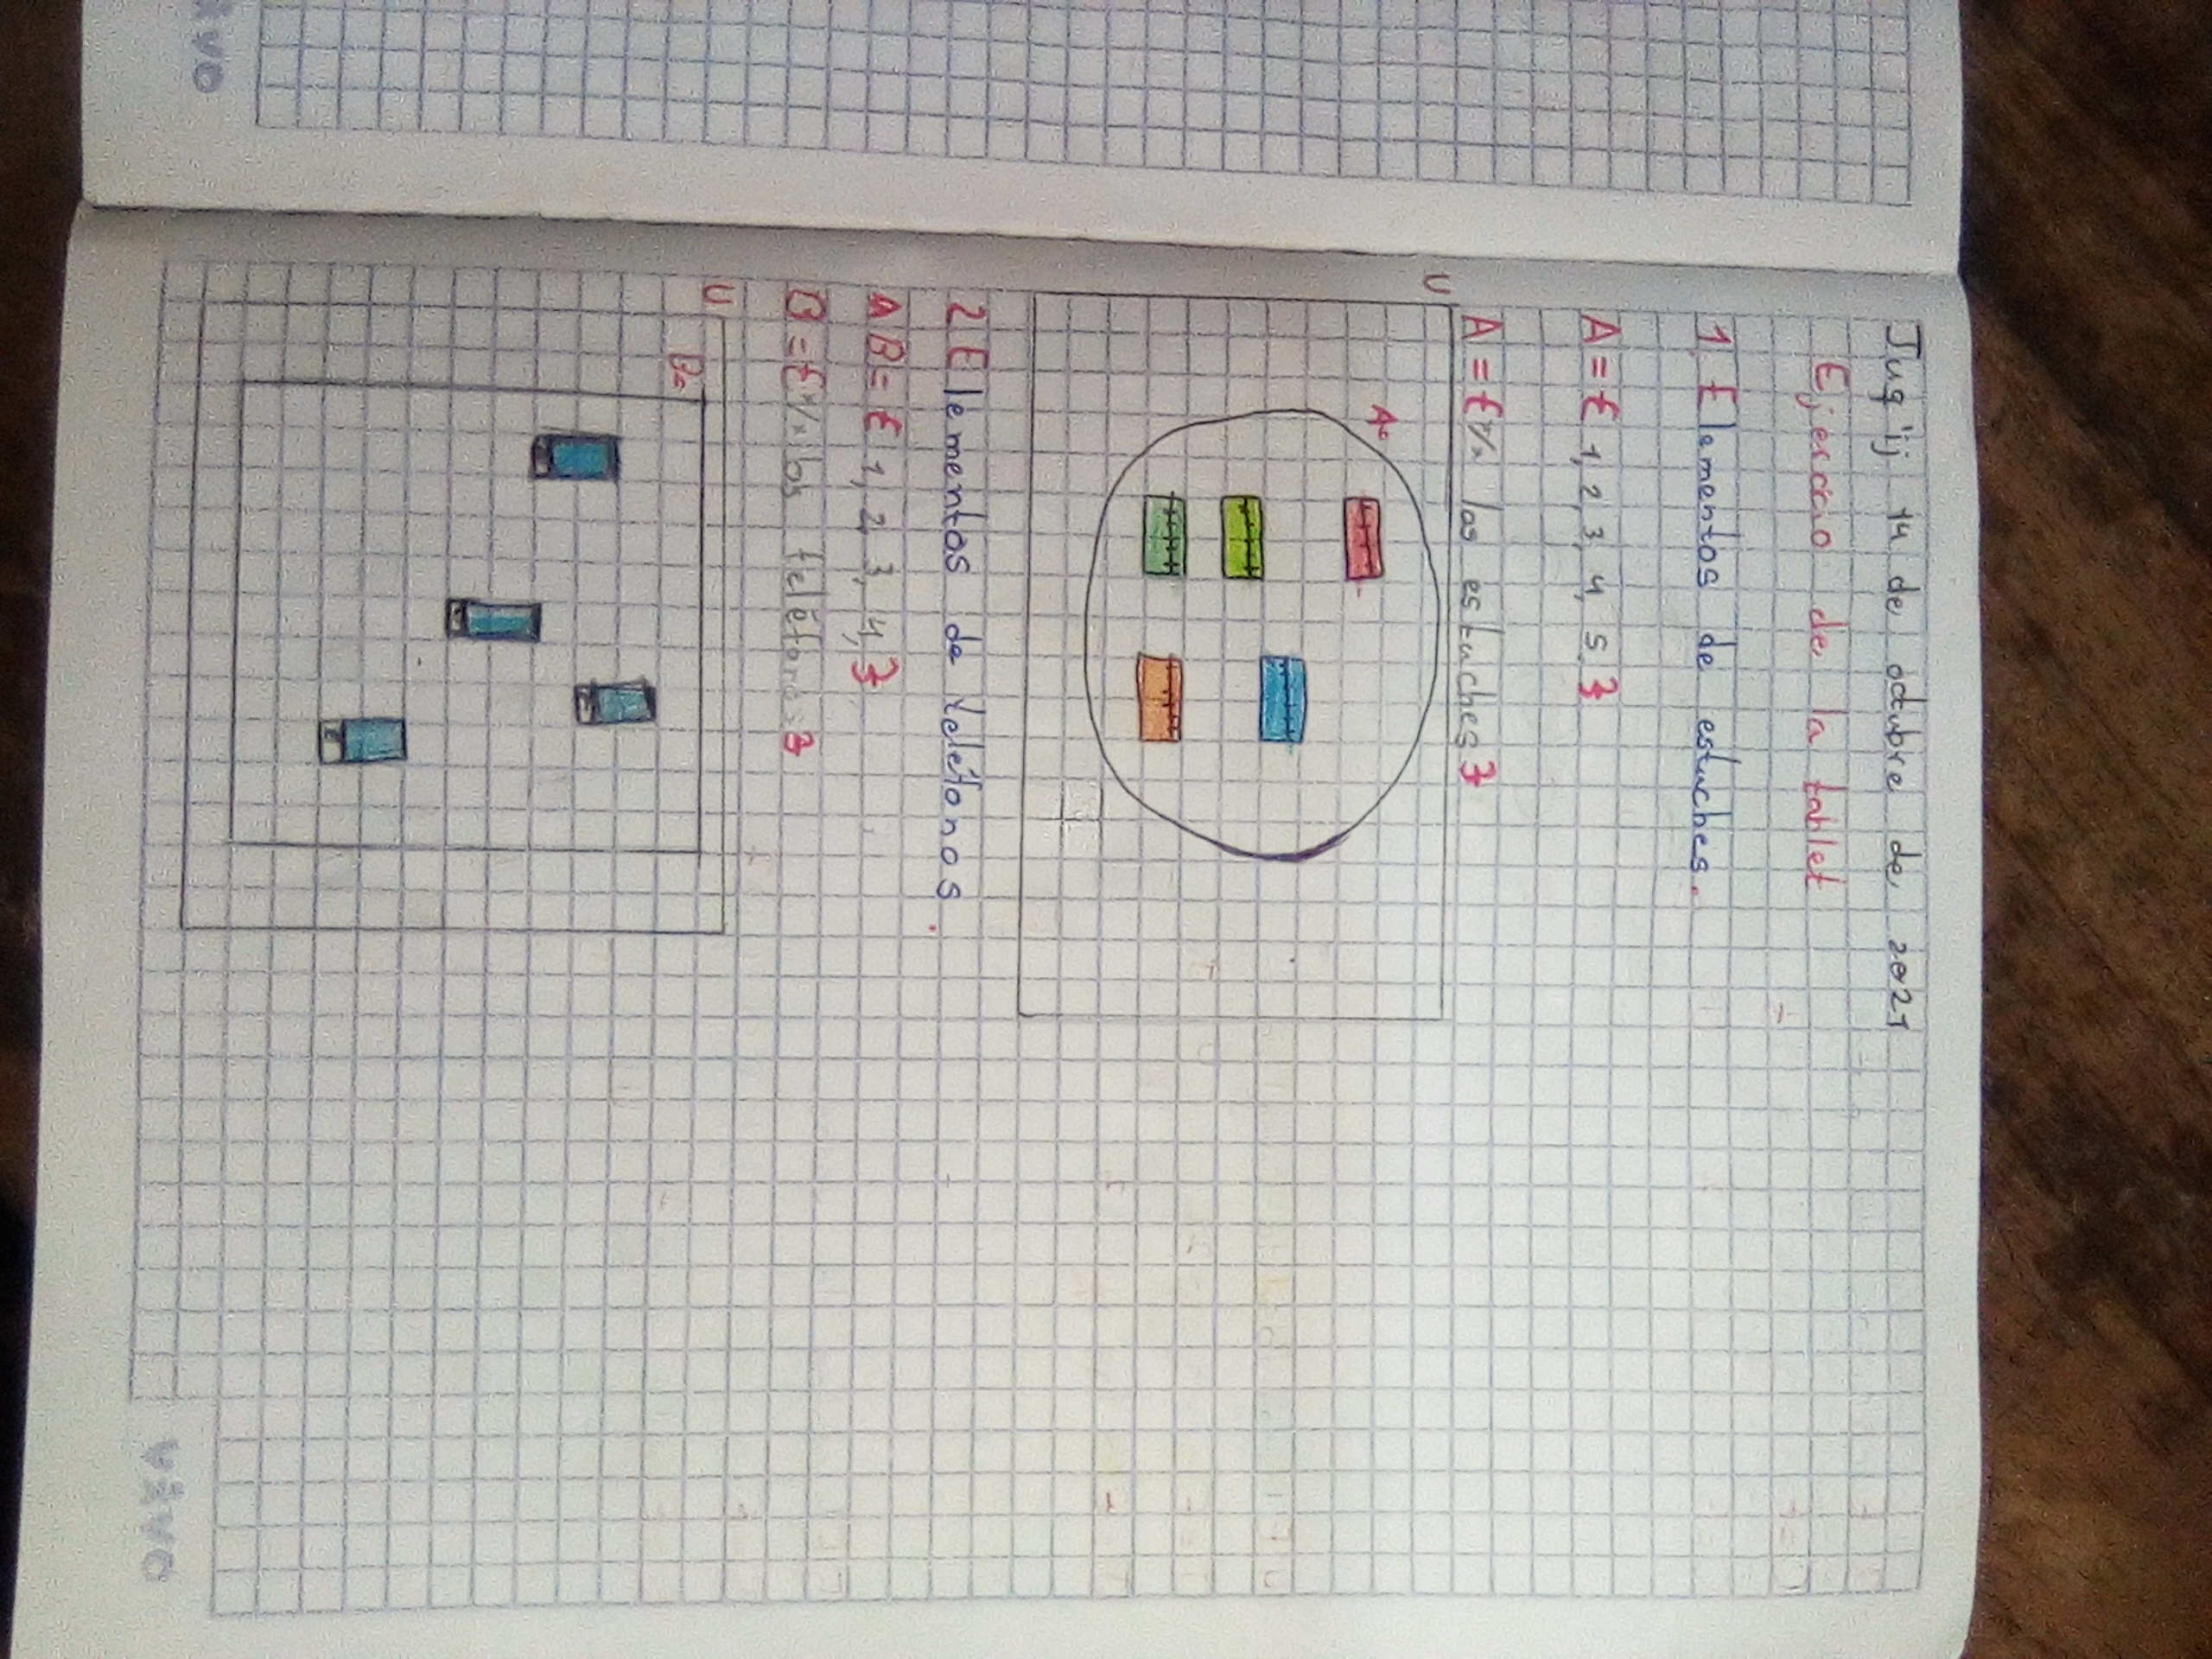 Juq'ij 14 de octubre de 2021
Ejercicio de la tablet
1 Elementos de estuches.
A = { 1, 2, 3, 4, 5 }
A = { x/x los estuches }
U
A
2 Elementos de teléfonos.
A B = { 1, 2, 3, 4, }
B = { x/x los teléfonos }
U
B